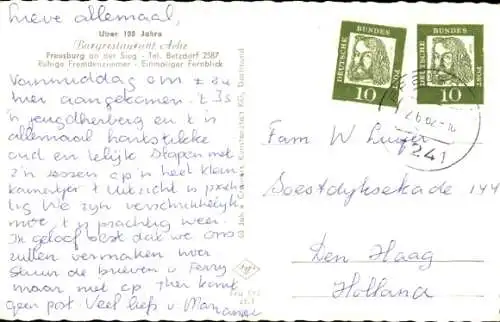 Lieve allemaal,
Über 100 Jahre
Burgrestaurant
Freusburg an der Sieg - Tel. Betzdorf 2587
Ruhige Fremdenzimmer - Einmaliger Fernblick
Vanmiddag om
hier aangekomen. 't Is
'n jeugdherberg en 't is
allemaal hartstikke
oud en lelijk. Slapen met
z'n zessen op 'n heel klein
kamertje. 't Uitzicht is prach-
tig. We zijn verschrikkelijk
moe, 't is prachtig weer.
Ik geloof best dat we ons
zullen vermaken hier
Stuur de brieven v. Ferry
maar niet op
geen post. Veel liefs v.
DEUTSCHE BUNDESPOST
10
DEUTSCHE BUNDESPOST
10
241
Fam W
Soestdijksekade 144
Den Haag
Holland
Agfa